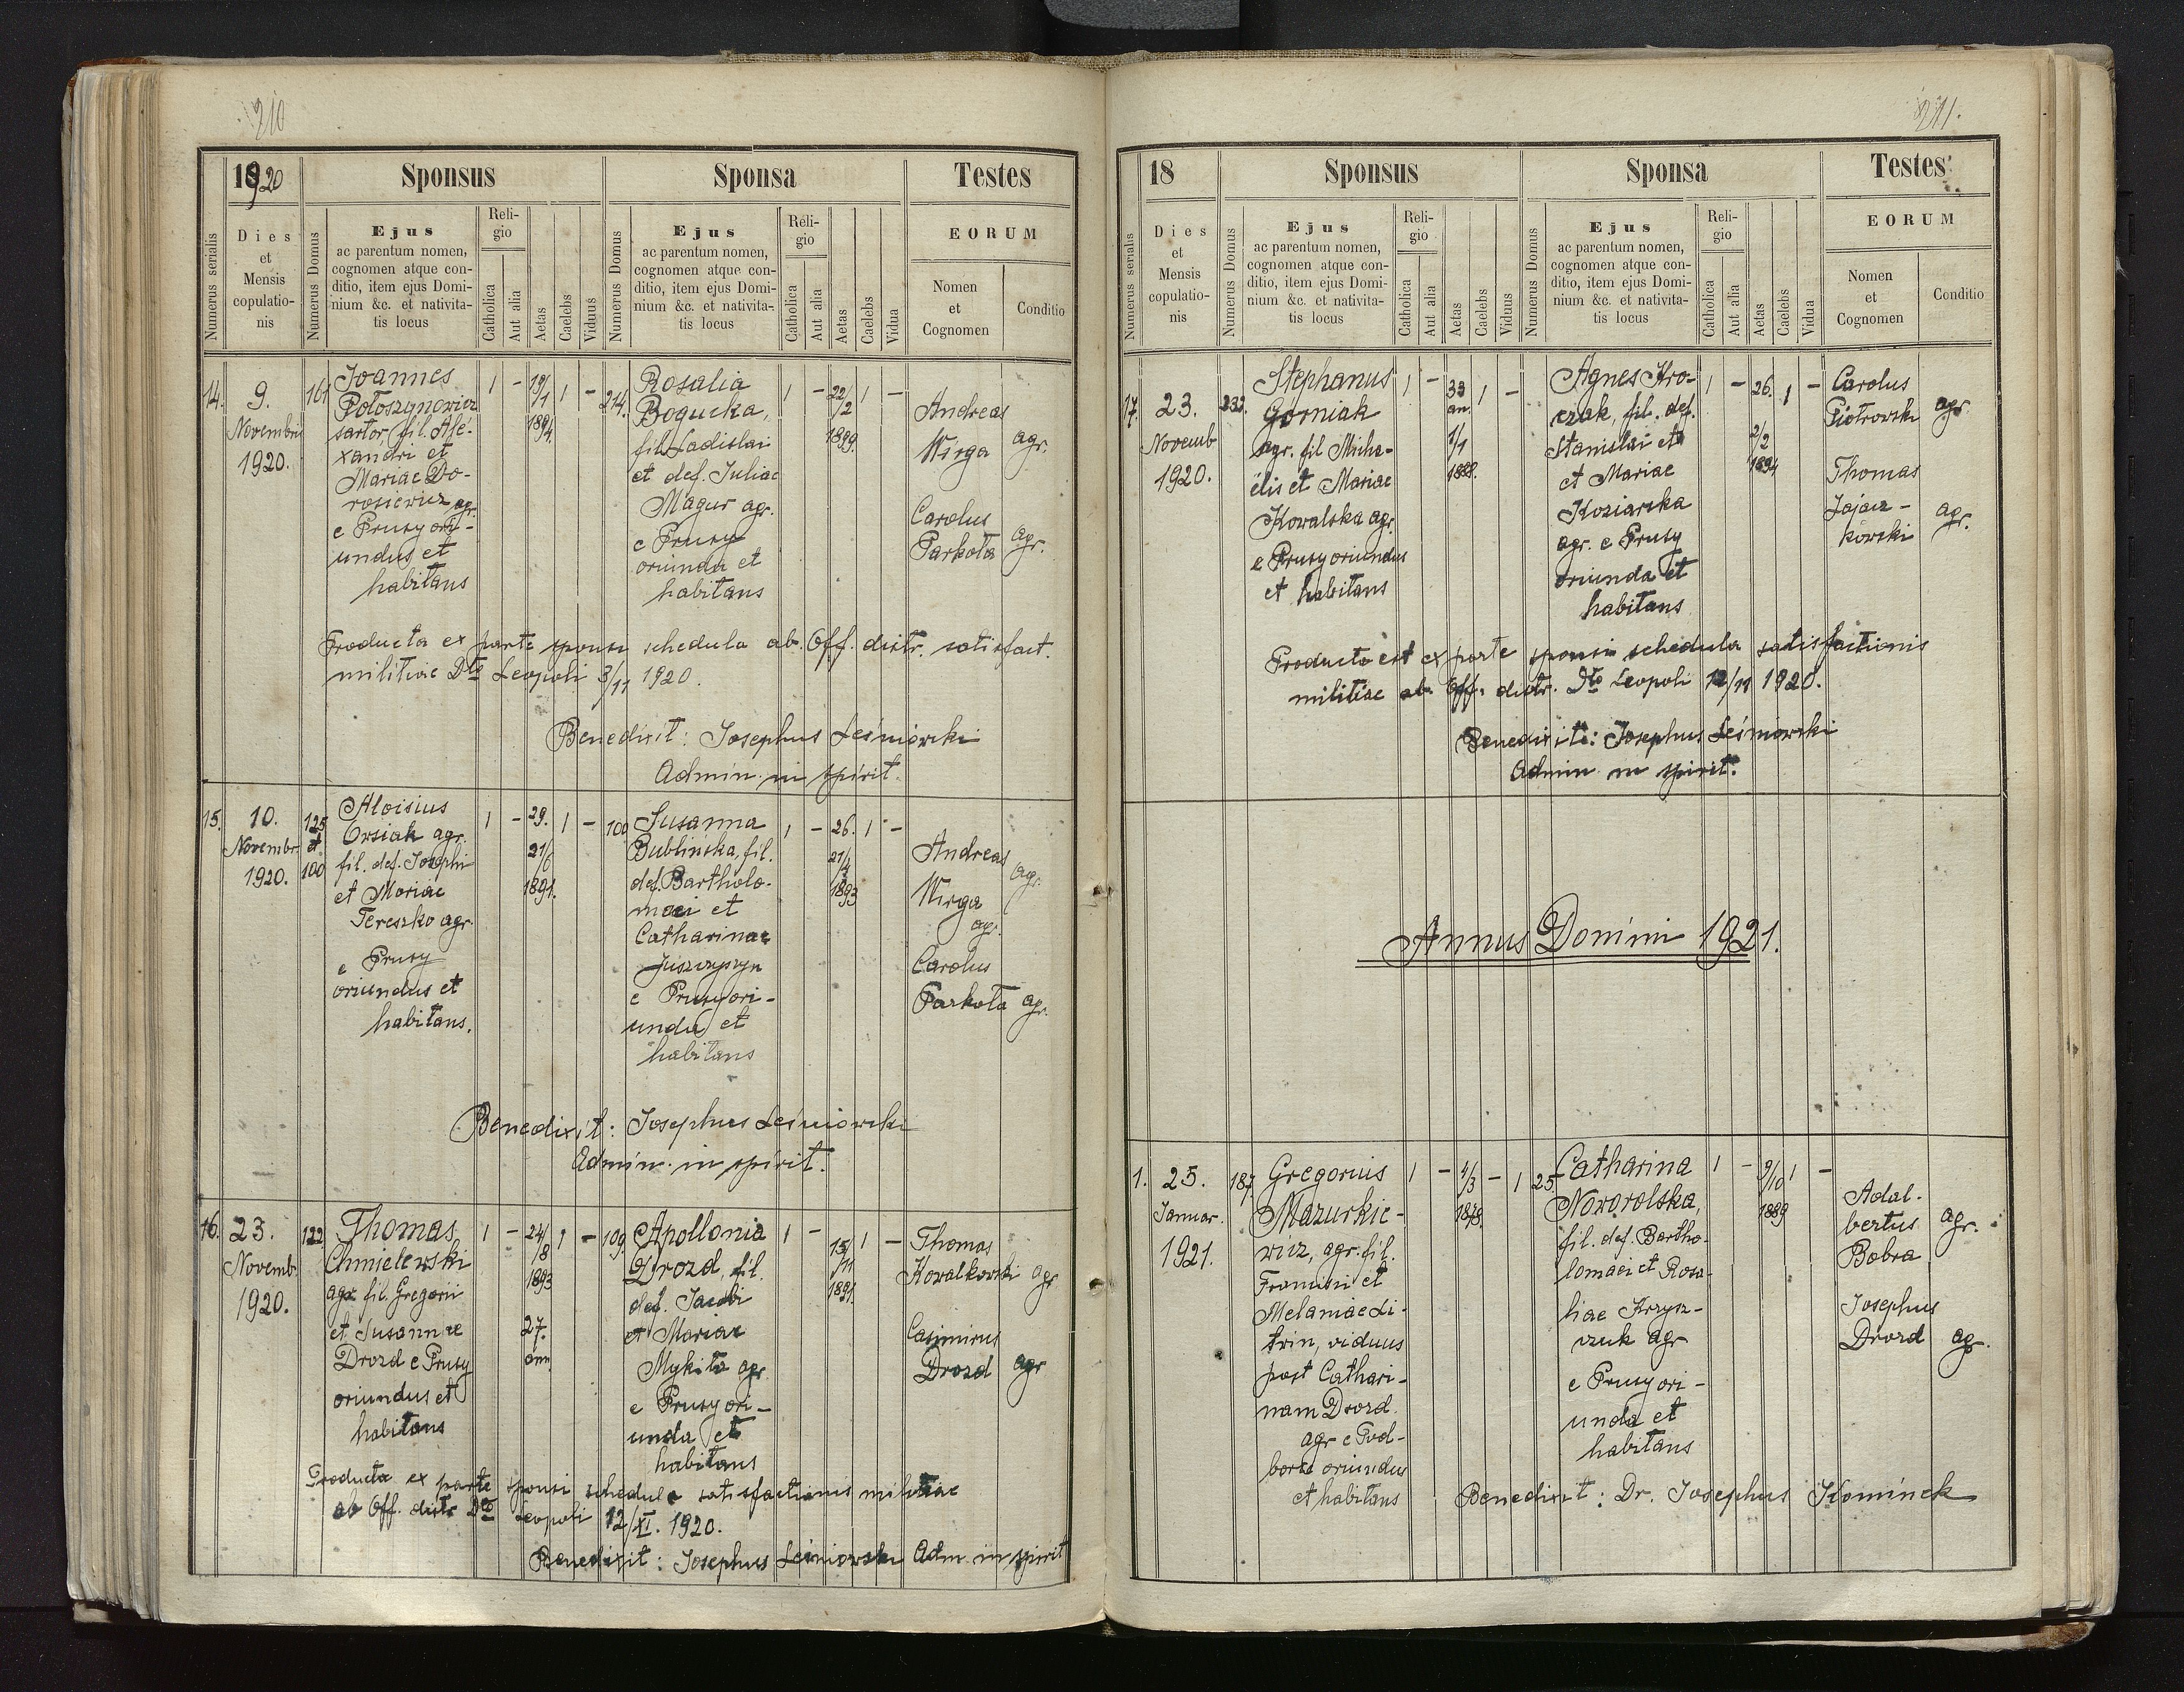 210
1920
Sponsus
Sponsa
Testes
Numerus serialis
Dies
et
Mensis
copulatio-
nis
Numerus Domus
Ejus
ac parentum nomen,
cognomen atque con-
ditio, item ejus Domi-
nium &c. et nativita-
tis locus
Reli-
gio
Catholica
Aut alia
Aetas
Caelebs
Viduus
Numerus Domus
Ejus
ac parentum nomen,
cognomen atque con-
ditio, item ejus Domi-
nium &c. et nativita-
tis locus
Reli-
gio
Catholica
Aut alia
Aetas
Caelebs
Vidua
EORUM
Nomen
et
Cognomen
Conditio
14.
9.
Novembris
1920.
161
Joannes
Potoszynowicz
sartor, fil. Ale-
xandri et
Mariae Do-
rosiewicz agr.
e Prusy ori-
undus et
habitans
1 - 19/1 1 -
1894.
214.
Rosalia
Bogucka,
fil. Ladislai
et def. Juliae
Magur agr.
e Prusy
oriunda et
habitans
1 - 22/2 1 -
1899.
Andreas
Wirga agr.
Carolus
Parkota agr.
Producta ex parte sponsi schedula ab. Off. distr. satisfact.
militiae Dto Leopoli 3/11 1920.
Benedixit: Josephus Leśniowski
Admin. in spirit.
15.
10.
Novembr.
1920.
125
et
100
Aloisius
Orsiak agr.
fil. def. Josephi
et Mariae
Tereszko agr.
e Prusy
oriundus et
habitans.
1 - 29. 1 -
21/6
1891.
100
Susanna
Bublińska, fil.
def. Bartholo-
maei et
Catharinae
Juszczyszyn
e Prusy ori-
unda et
habitans
1 - 26. 1 -
21/4
1893
Andreas
Wirga agr.
agr.
Carolus
Parkota agr.
Benedixit: Josephus Leśniowski
Admin. in spirit.
16.
23.
Novemb.
1920.
122
Thomas
Chmielewski
agr. fil. Gregorii
et Susannae
Drozd e Prusy
oriundus et
habitans
1 - 24/8 1 -
1893
27.
ann.
109.
Apollonia
Drozd, fil.
def. Jacobi
et Mariae
Mykita agr.
e Prusy ori-
unda et
habitans
1 - 15/11 1 -
1891.
Thomas
Kowalkowski agr.
Casimirus
Drozd agr.
Producta ex parte sponsi schedula satisfactionis militiae
ab Off. distr. Dto Leopoli 12/XI. 1920.
Benedixit: Josephus Leśniowski Adm. in spirit.
211.
18
Sponsus
Sponsa
Testes
Numerus serialis
Dies
et
Mensis
copulatio-
nis
Numerus Domus
Ejus
ac parentum nomen,
cognomen atque con-
ditio, item ejus Domi-
nium &c. et nativita-
tis locus
Reli-
gio
Catholica
Aut alia
Aetas
Caelebs
Viduus
Numerus Domus
Ejus
ac parentum nomen,
cognomen atque con-
ditio, item ejus Domi-
nium &c. et nativita-
tis locus
Reli-
gio
Catholica
Aut alia
Aetas
Caelebs
Vidua
EORUM
Nomen
et
Cognomen
Conditio
17.
23.
Novemb
1920.
232.
Stephanus
Gorniak
agr. fil. Micha-
elis et Mariae
Kowalska agr.
e Prusy oriundus
et habitans
1 - 33 1 -
an.
1/1
1888.
Agnes Kro-
czak, fil. def.
Stanislai et
et Mariae
Koziarska
agr. e Prusy
oriunda et
habitans
1 - 26. 1 -
2/2
1894
Carolus
Piotrowski agr.
Thomas
Zając-
kowski agr.
Producta est ex parte sponsi schedula satisfactionis
militiae ab. Off. distr. Dto Leopoli 12/11 1920.
Benedixit: Josephus Leśniowski
Admin. in spirit.
Annus Domini 1921.
1.
25.
Januar.
1921.
187
Gregorius
Mazurkie-
wicz, agr. fil.
Francisci et
Melaniae Li-
twin, viduus
post Cathari-
nam Drozd
agr e Pod-
borce oriundus
et habitans
1 - 4/3 - 1
1878.
25.
Catharina
Noworolska,
fil. def. Bartho-
lomaei et Rosa-
liae Krzysz-
czuk agr
e Prusy ori-
unda et
habitans
1 - 9/10 1 -
1889
Adal-
bertus agr.
Bobra
Josephus
Drozd agr.
Benedixit: Dr. Josephus Kominek